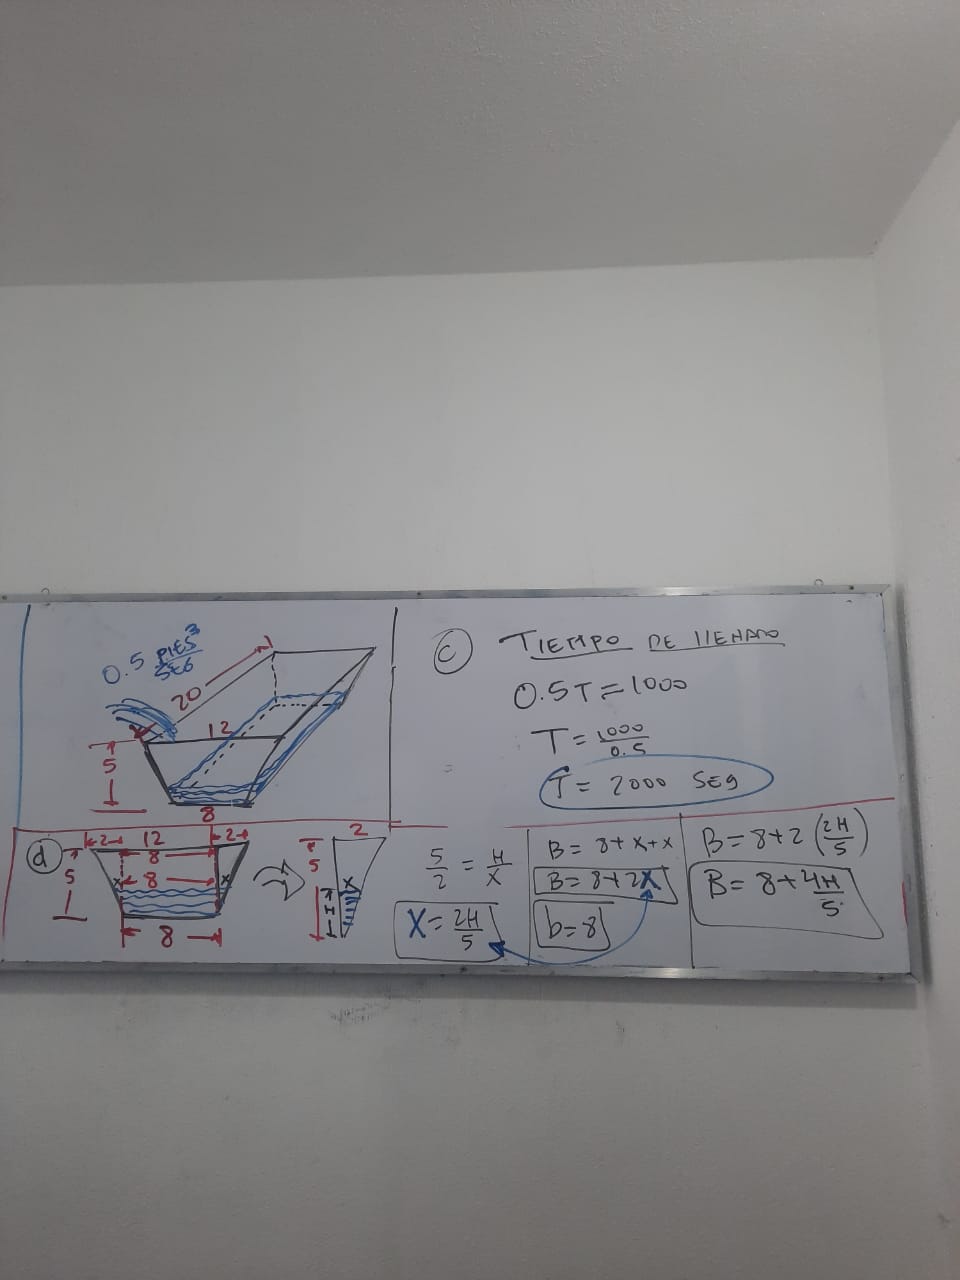 0.5 PIES³/SEG
20
12
5
8
c TIEMPO DE LLENADO
0.5T = 1000
T = 1000/0.5
T = 2000 SEG
d
2 12 2
8
5
x 8 x
8
2
5
x
H
5/2 = H/X
X = 2H/5
B = 8+x+x
B = 8+2X
b=8
B = 8+2(2H/5)
B = 8+4H/5